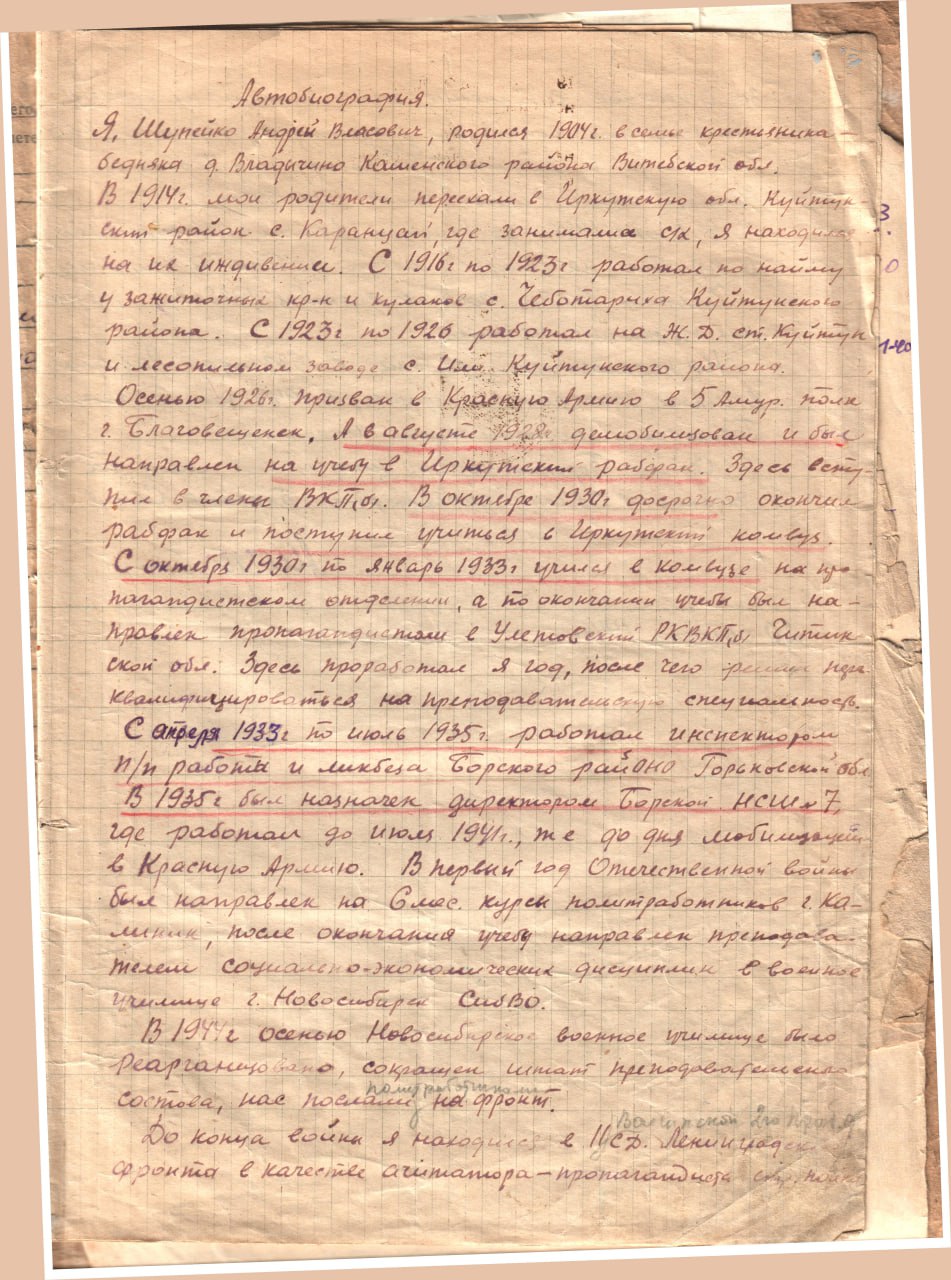 Автобиография.
Я, Шупейко Андрей Власович, родился 1904г. в семье крестьянина-
бедняка д. Владычино Каменского района Витебской обл.
В 1914г. мои родители переехали в Иркутскую обл. Куйтун-
ский район с. Каранцай, где занимались с/х, я находился
на их иждивении. С 1916г по 1923г работал по найму
у зажиточных кр-н и кулаков с. Чеботариха Куйтунского
района. С 1923г по 1926 работал на Ж.Д. ст. Куйтун
и лесопильном заводе с. Или Куйтунского района.
Осенью 1926г. призван в Красную Армию в 5 Амур. полк
г. Благовещенск. А в августе 1928г демобилизован и был
направлен на учебу в Иркутский рабфак. Здесь всту-
пил в члены ВКП(б). В октябре 1930г досрочно окончил
рабфак и поступил учиться в Иркутский комвуз.
С октября 1930г по январь 1933г учился в комвузе на про-
пагандистском отделении, а по окончании учебы был на-
правлен пропагандистом в Улетовский РКВКП(б) Читин
ской обл. Здесь проработал я год, после чего решил пере
квалифицироваться на преподавательскую специальность.
С апреля 1933г по июль 1935г. работал инспектором
п/п работы и ликбеза Борского райОНО Горьковской обл
В 1935г был назначен директором Борской НСШ № 7,
где работал до июля 1941г., т е до дня мобилизации
в Красную Армию. В первый год Отечественной войны
был направлен на 6 мес. курсы политработников г. Ка-
линин, после окончания учебы направлен преподава-
телем социально-экономических дисциплин в военное
училище г. Новосибирск СибВО.
В 1944г осенью Новосибирское военное училище было
реарганизовано, сокращен штат преподавательского
политработниками
состава, нас послали на фронт.
2го
До конца войны я находился в СД. Ленинградск
фронта в качестве агитатора-пропагандиста стр. полка
3
0
1-40